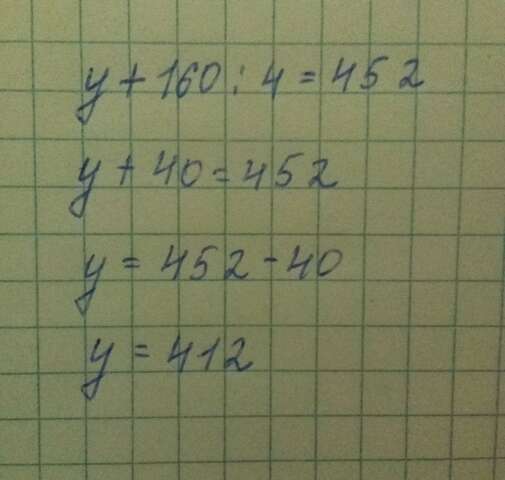 y + 160 : 4 = 452
y + 40 = 452
y = 452 - 40
y = 412